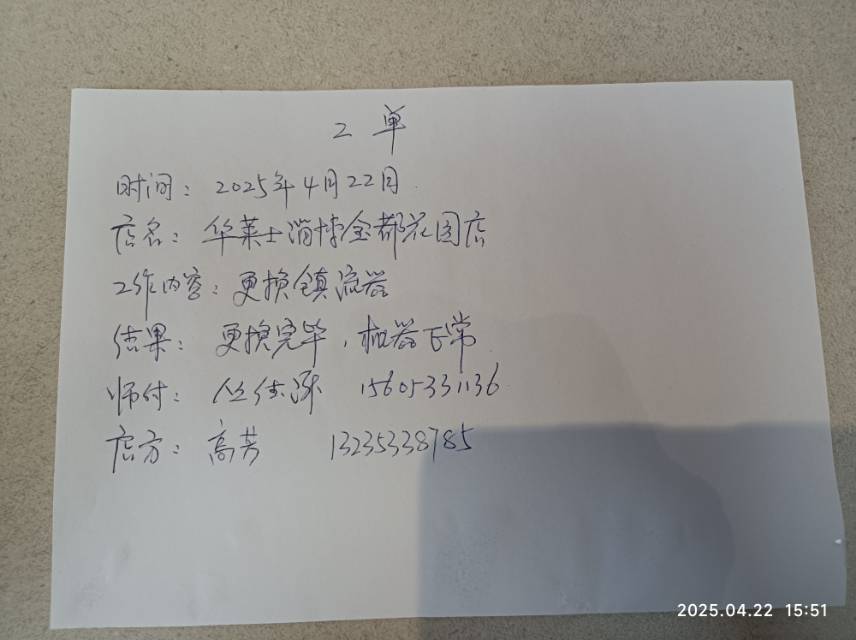 工单
时间：2025年4月22日
店名：华莱士淄博金都花园店
工作内容：更换镇流器
结果：更换完毕，机器正常
师付：丛佳 15605331136
店方：高芳 13235338785
2025.04.22 15:51